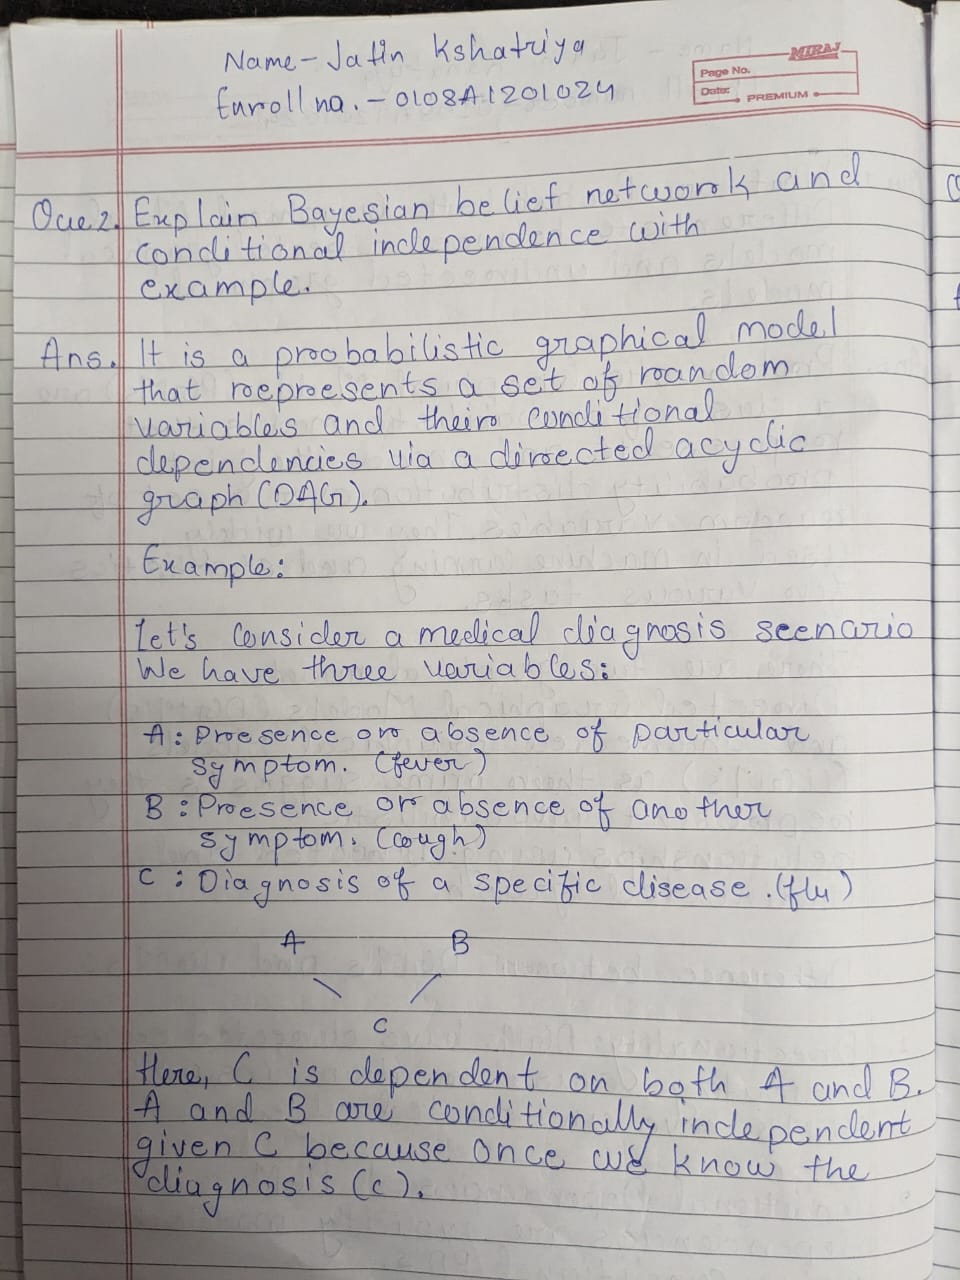 Name - Jatin Kshatriya
Enroll no. - 0108AI201024
MIRAJ
Page No.
Date:
PREMIUM
Que 2. Explain Bayesian belief network and
conditional independence with
example.
Ans. It is a probabilistic graphical model
that represents a set of random
variables and their conditional
dependencies via a directed acyclic
graph (DAG).
Example:
Let's consider a medical diagnosis scenario
We have three variables:
A : Presence or absence of particular
symptom. (fever)
B : Presence or absence of another
symptom. (cough)
C : Diagnosis of a specific disease. (flu)
A B
C
Here, C is dependent on both A and B.
A and B are conditionally independent
given C because once we know the
diagnosis (c).